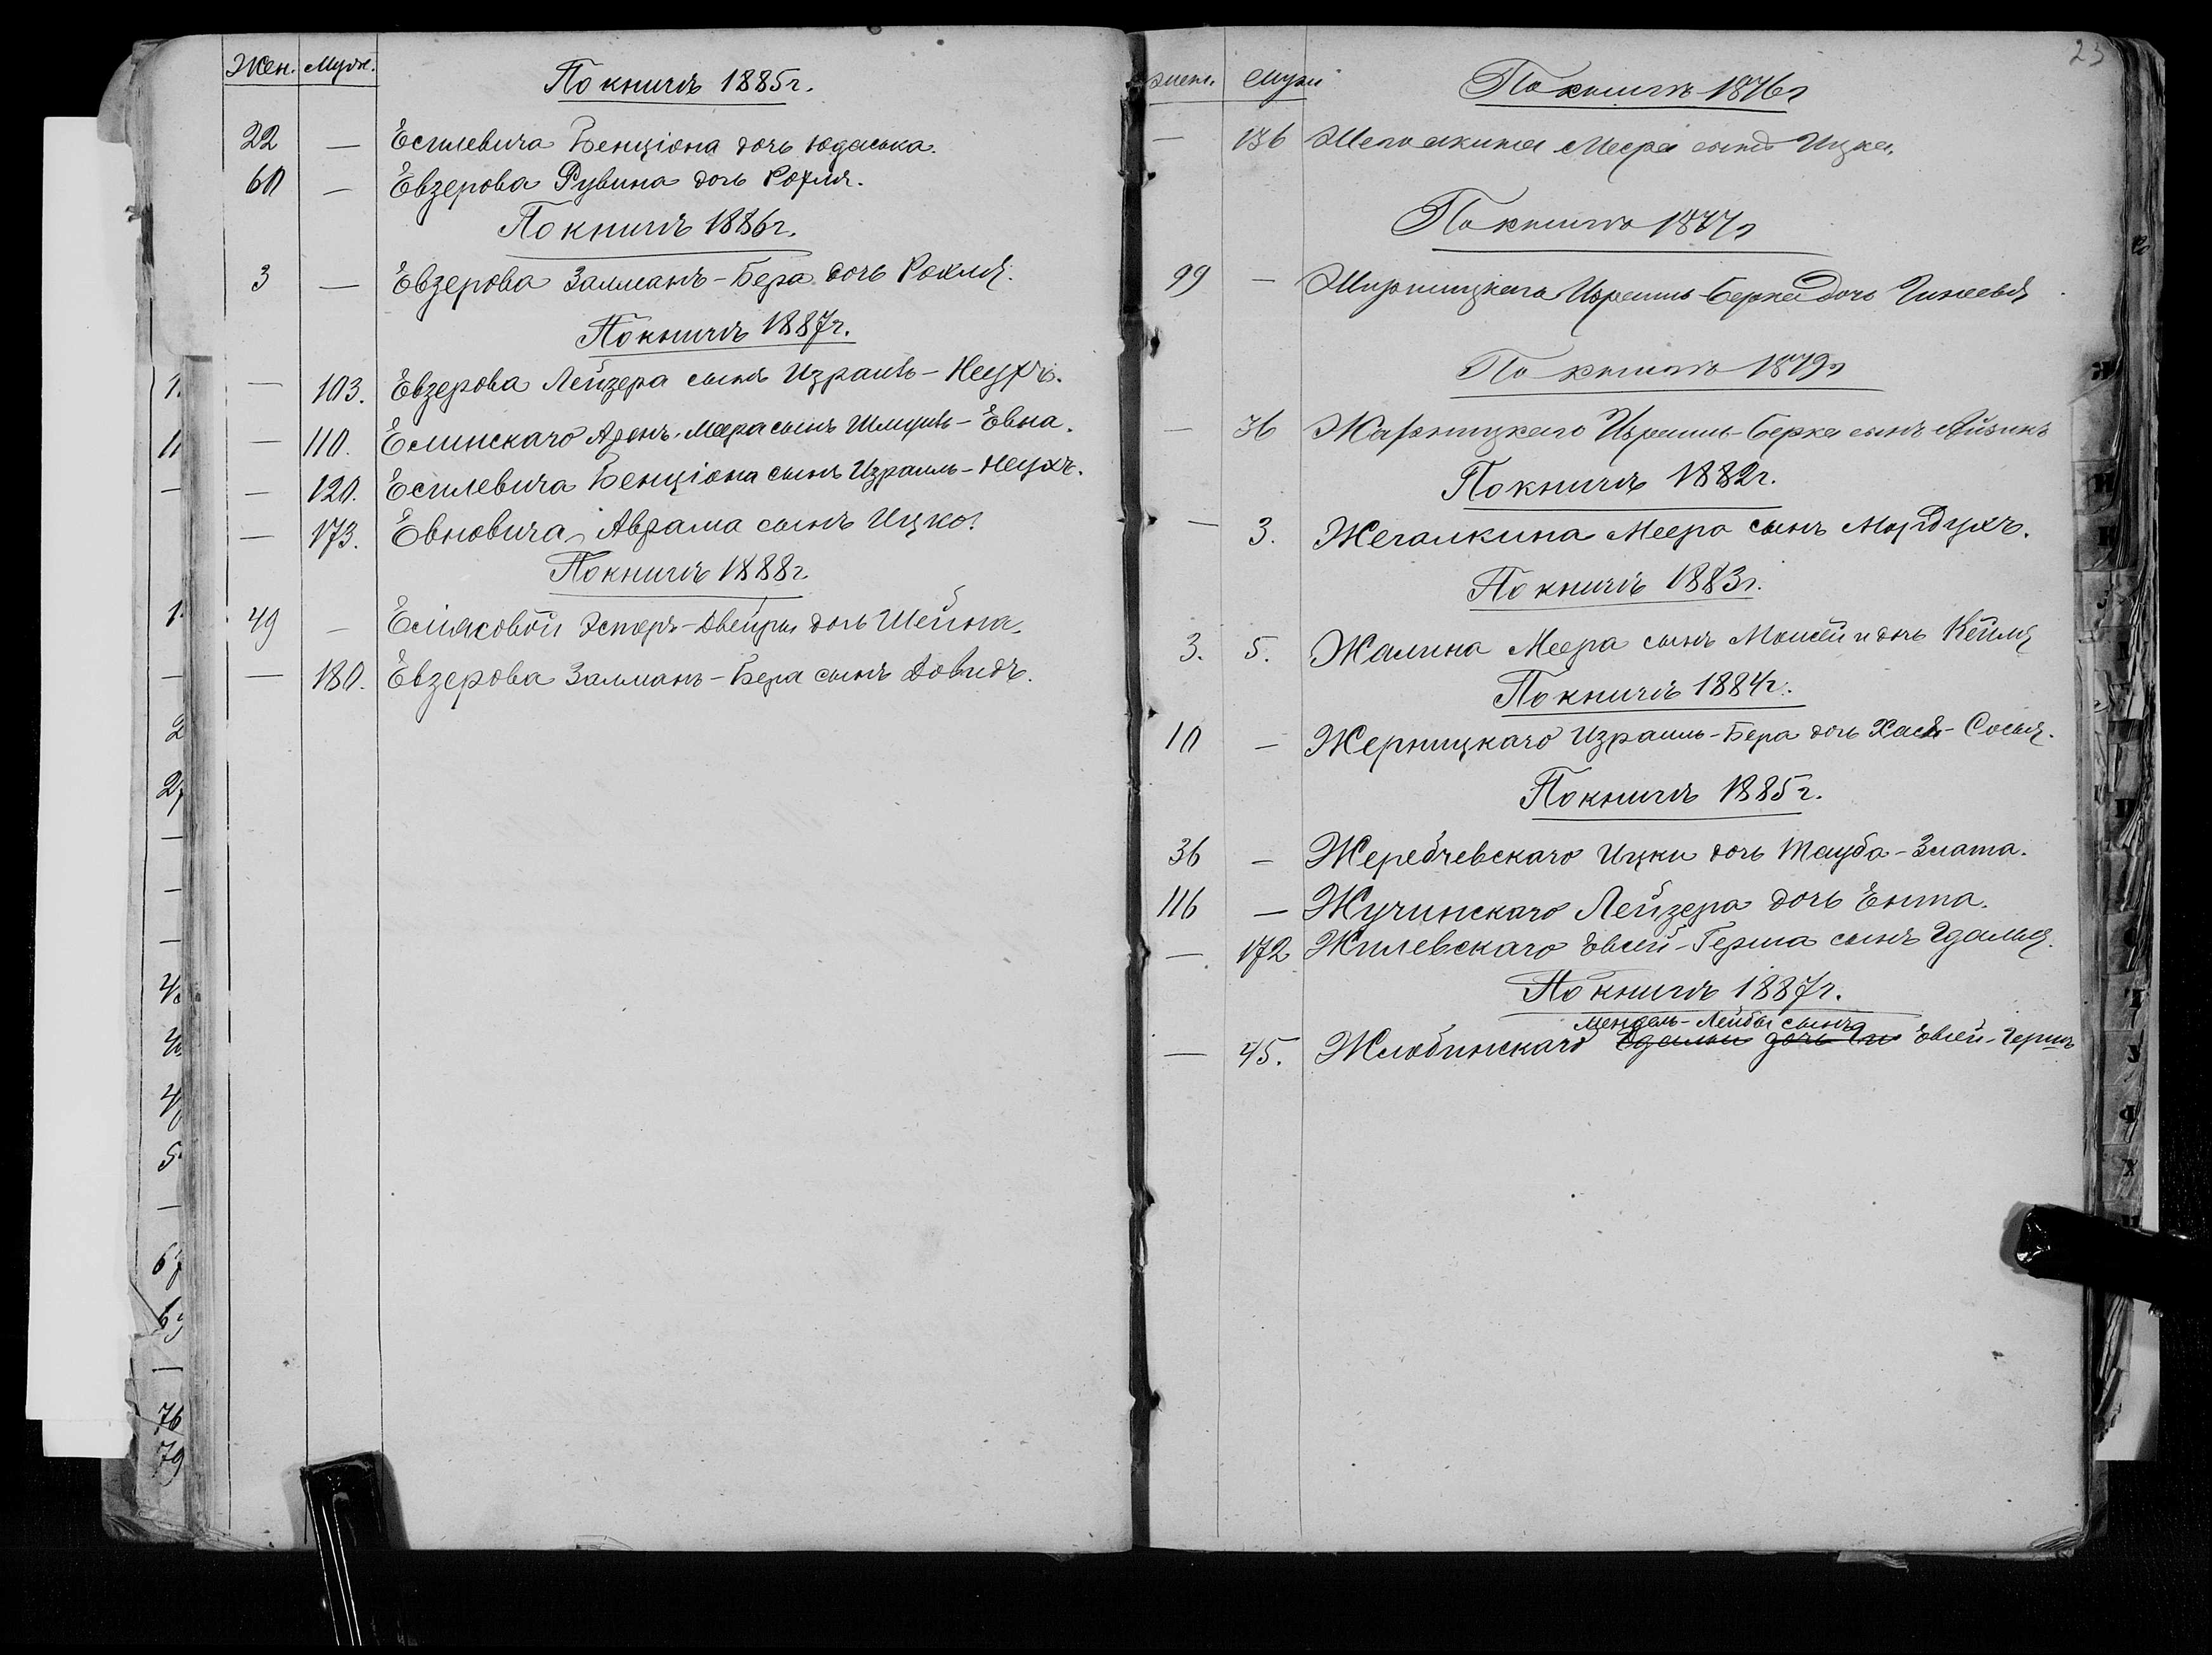 Жен. Муж.
По книгѣ 1885 г.
22 — Есилевича Бенціона дочь Юдаська.
60 — Евзерова Рувина дочь Рохля.
По книгѣ 1886 г.
3 — Евзерова Залманъ-Бера дочь Рохля.
По книгѣ 1887 г.
— 103. Евзерова Лейзера сынъ Израиль-Неухъ.
— 110. Елинскаго Аронъ-Меера сынъ Шмуиль-Евна.
— 120. Есилевича Бенціона сынъ Израиль-Неухъ.
— 173. Евновича Аврама сынъ Ицко.
По книгѣ 1888 г.
49 — Еліясовой Эстеръ-Двейры дочь Шейна.
— 180. Евзерова Залманъ-Бера сынъ Довидъ.
23
Жен. Муж
По книгѣ 1876 г
— 136 Жегалкина Меера сынъ Ицка.
По книгѣ 1877 г
99 — Израиль-Берка дочь
По книгѣ 1879 г
— 36 Жарницкаго Израиль-Берка сынъ Айзикъ
По книгѣ 1882 г.
— 3. Жегалкина Меера сынъ Мордухъ.
По книгѣ 1883 г.
3. 5. Жалина Меера сынъ Моисей и дочь Кейля
По книгѣ 1884 г.
10 — Жерницкаго Израиль-Бера дочь Хася-Сосья.
По книгѣ 1885 г.
36 — Жеребчевскаго Ицки дочь Тауба-Злата.
116 — Жучинскаго Лейзера дочь Ента.
— 172 Жилевскаго Евсей-Герша сынъ Гдалья.
По книгѣ 1887 г.
Мендель-Лейбы сынъ
— 45. Жлобинскаго Евсей-Гершъ